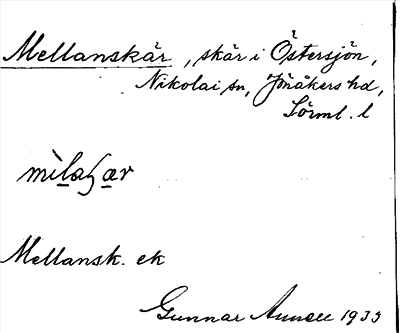 Mellanskär, skär i Östersjön,
Nikolai sn, Jönåkers hd,
Sörml. l
Mellansk. ek
Gunnar 1933